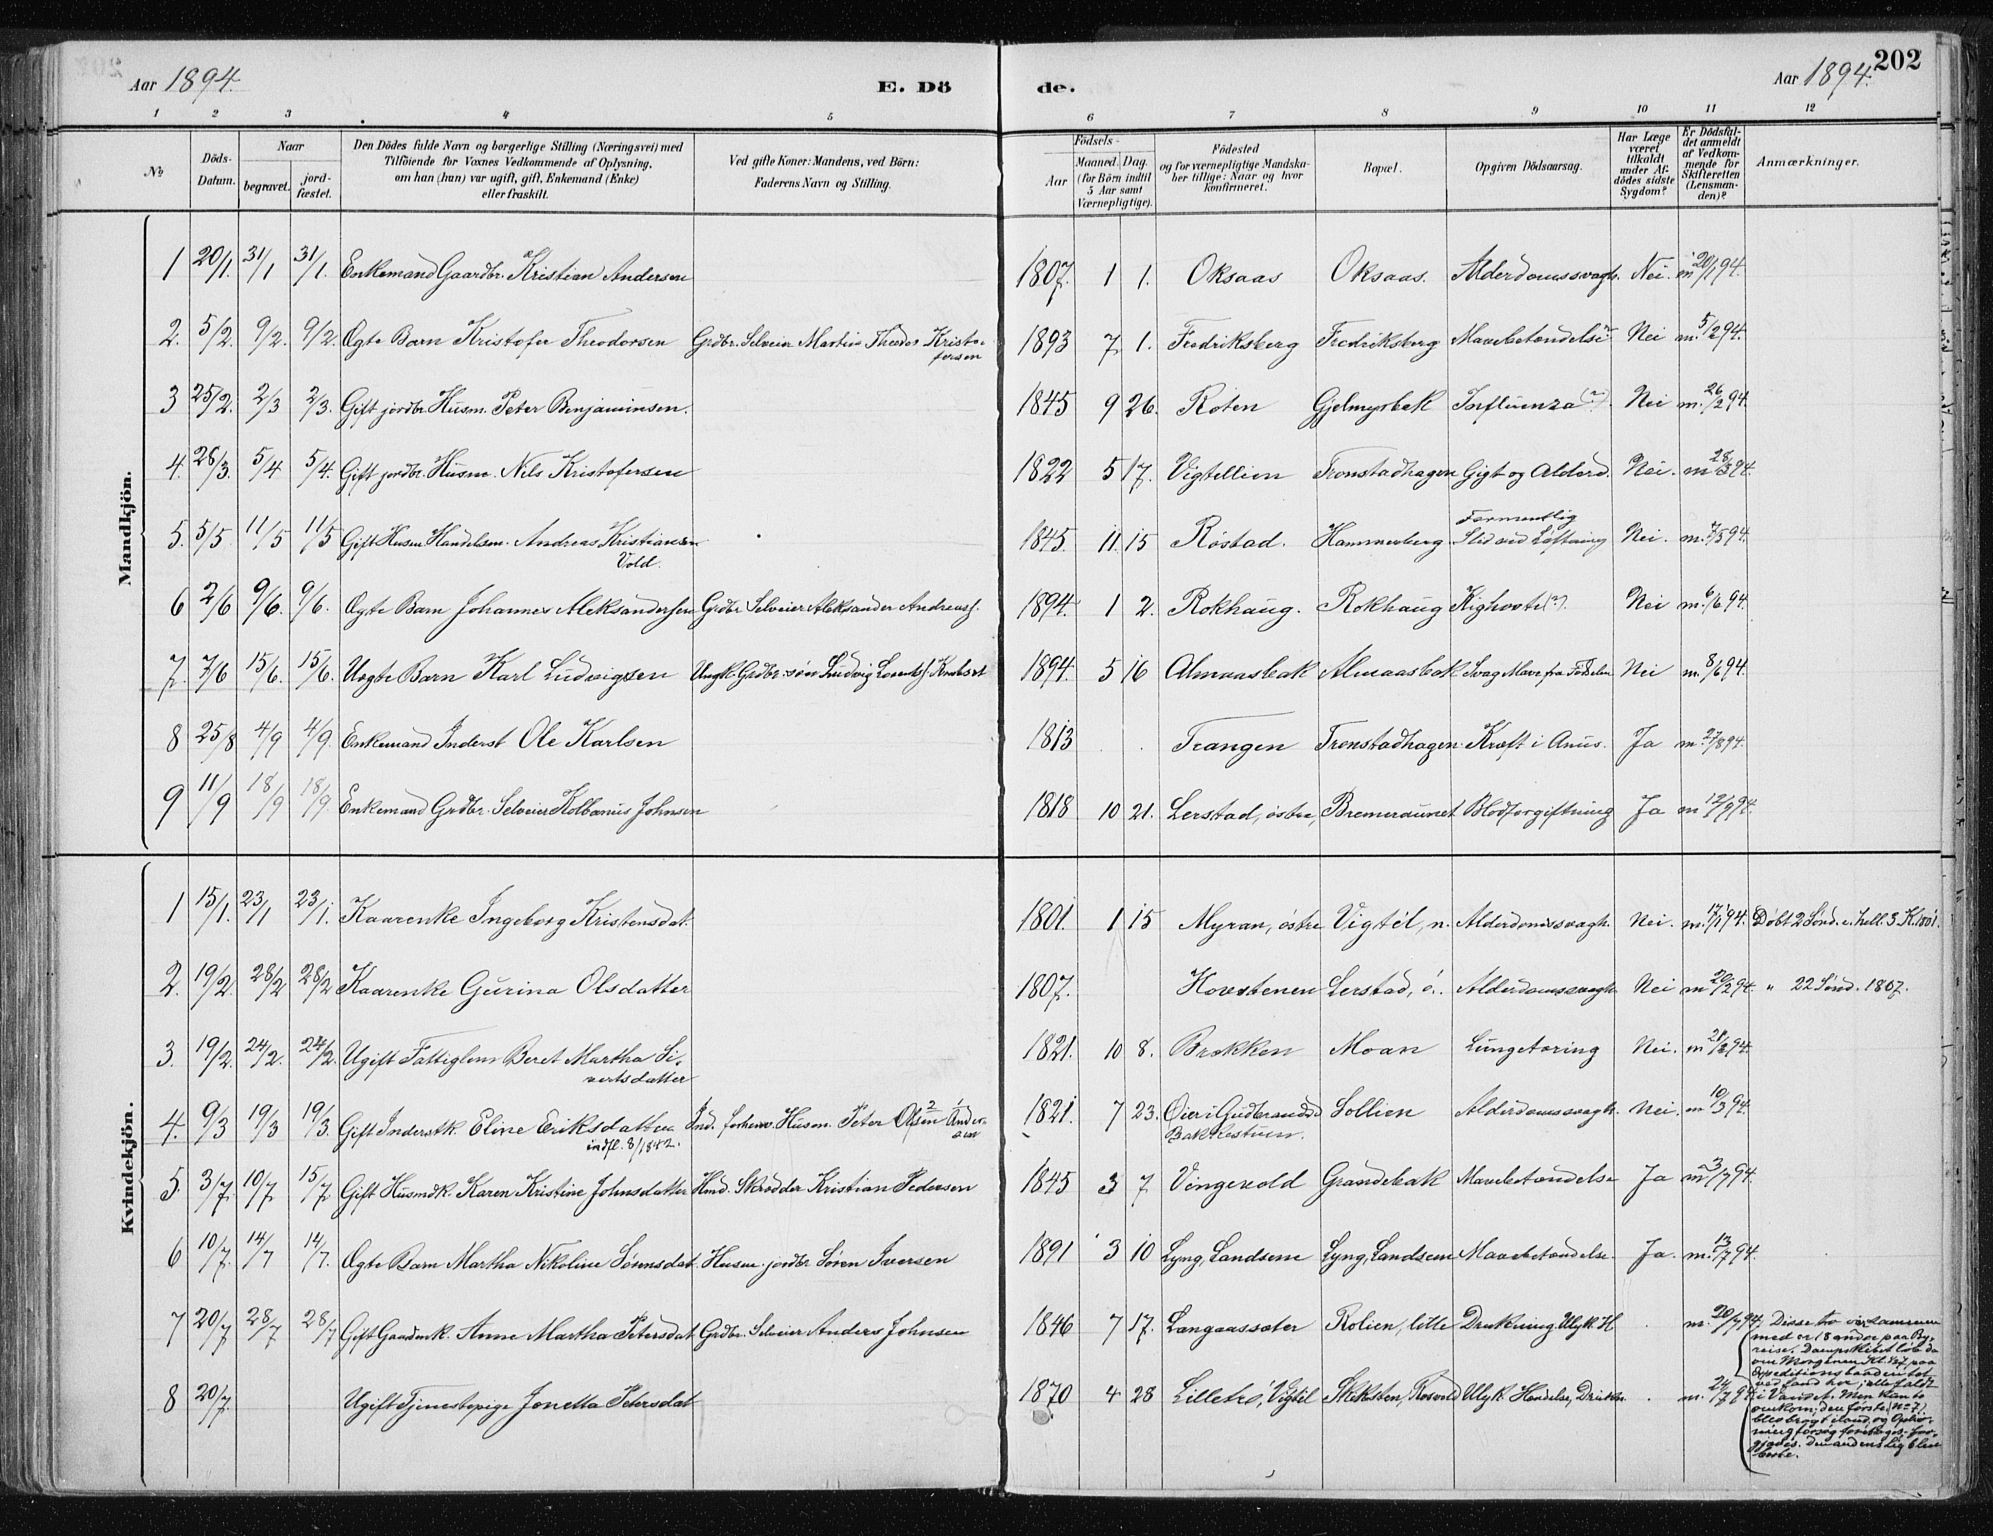 Aar 1894.
E. Dö
de.
Aar 1894. 202
1 2 3 4 5 6 7 8 9 10 11 12
№
Döds-Datum.
Naar
begravet.
jord-fæstet.
Den Dödes fulde Navn og borgerlige Stilling (Næringsvei) med
Tilföiende for Voxnes Vedkommende af Oplysning,
om han (hun) var ugift, gift, Enkemand (Enke)
eller fraskilt.
Ved gifte Koner: Mandens, ved Börn:
Faderens Navn og Stilling.
Födsels-
Aar
Maaned. Dag.
(for Börn indtil
5 Aar samt
Værnepligtige).
Födested
og for værnepligtige Mandska-
ber tillige: Naar og hvor
konfirmeret.
Bopæl.
Opgiven Dödsaarsag.
Har Læge
været
tilkaldt
under Af-
dödes sidste
Sygdom?
Er Dödsfal-
det anmeldt
af Vedkom-
mende for
Skifteretten
(Lensman-
den)?
Anmærkninger.
Mandkjön.
1 20/1. 31/1 31/1. Enkemand Gaardbr. Kristian Andersen 1807. 1 1. Oksaas Oksaas. Alderdomssvagh. Nei. m 20/1 94.
2. 5/2. 9/2. 9/2. Ægte Barn Kristofer Theodorsen Grdbr. Selveier Martin Theodor Kristo-
fersen 1893 7 1. Fredriksberg Fredriksberg Mavebetændelse Nei m. 5/2 94.
3 25/2. 2/3 2/3. Gift jordbr. Husm. Peter Benjaminsen. 1845 9 26. Röten Gjelmyrbak Influenza (?). Nei m. 26/2 94.
4. 28/3. 5/4 5/4. Gift jordbr. Husm. Nils Kristofersen 1822 5 17. Vigtellien Tronstadhagen Gigt og Alderd. Nei. m 28/3 94.
5. 5/5. 11/5 11/5 Gift Husm. Handelsm. Andreas Kristiansen
Vold. 1845. 11. 15 Röstad. Hammerberg.
Formentlig
Slid ved Löftning Nei. m. 7/5 94.
6 2/6 9/6. 9/6. Ægte Barn Johannes Aleksandersen Grdbr. Selveier Aleksander Andreass. 1894. 1 2. Rokhaug. Rokhaug Kighoste (?). Nei m. 6/6 94.
7. 7/6 15/6. 15/6. Uægte Barn Karl Ludvigsen Ungk. Grdbr. sön Ludvig Lorents. 1894. 5 16 Almaasbak Almaasbak Svag Mave fra Födselen Nei m. 8/6 94.
8 25/8 4/9 4/9. Enkemand Inderst Ole Karlsen 1813 Trangen Tronstadhagen Kræft i Anus. Ja m. 27/8 94.
9 11/9 18/9 18/9. Enkemand Grdbr. Selveier Kolbanus Johnsen 1818 10 21. Lerstad, östre, Bremeraunet Blodforgiftning Ja m 12/9 94.
Kvindekjön.
1 15/1. 23/1 23/1. Kaarenke Ingeborg Kristensdat. 1801. 1 15 Myran, östre Vigtil, n. Alderdomssvagh. Nei. m. 17/1 94. Döbt 2 Sönd. e. hell. 3 K. 1801.
2. 19/2. 28/2 28/2 Kaarenke Gurina Olsdatter 1807. Hovstenen Lerstad, ö. Alderdomssvagh. Nei m 20/2 94. " 22 Sönd. 1807.
3 19/2. 24/2. 24/2. Ugift Fattiglem Beret Martha Si-
vertsdatter 1821. 10 8. Brekken Moan Lungetæring Nei. m 21/2 94.
4. 9/3 19/3 19/3. Gift Inderstk. Eline Eriksdatter
indfl. 8/1842. Ind. forhenv. Husm. Peter Olsen 1821. 7 23. Öier i Gudbrandsd.
Bakkestuen. Sollien Alderdomssvagh. Nei. m 10/3 94.
5. 3/7. 10/7 15/7 Gift Husmdk. Karen Kristine Johnsdatter Hmd. Skrædder Kristian Pedersen 1845 3 7 Vingevold Grandebak Mavebetændelse Ja m 3/7 94.
6 10/7. 14/7 14/7. Ægte Barn Martha Nikoline Sörensdat. Husm. jordbr. Sören Iversen 1891 3 10 Lyng, Landsem Lyng, Landsem Mavebetændelse. Ja. m. 13/7 94.
7 20/7 28/7 28/7 Gift Gaardmk. Anne Martha Petersdat. Grdbr. Selveier Anders Johnsen 1846 7 17. Langaassæter Rolien, litle Drukning. Ulyk. H. m. 20/7 94.
8 20/7. Ugift Tjenestepige Jonetta Petersdat. 1870 4 28 Lillebö, Vigtil Ulyk. Hændelse, Drukn. m. 24/7 94.
Disse to var sammen
med 18 andre paa By-
reise. Dampskibet löb da
om Morgenen Kl. paa
Expeditionsbaaden tæt
ved Land hvor alle faldt
i Vandet. Men kun to
omkom; den förste (n=7)
blev bragt iland, og Opliv-
ningsforsög foretoges for-
gjæves. Den andens Lig blev
borte.